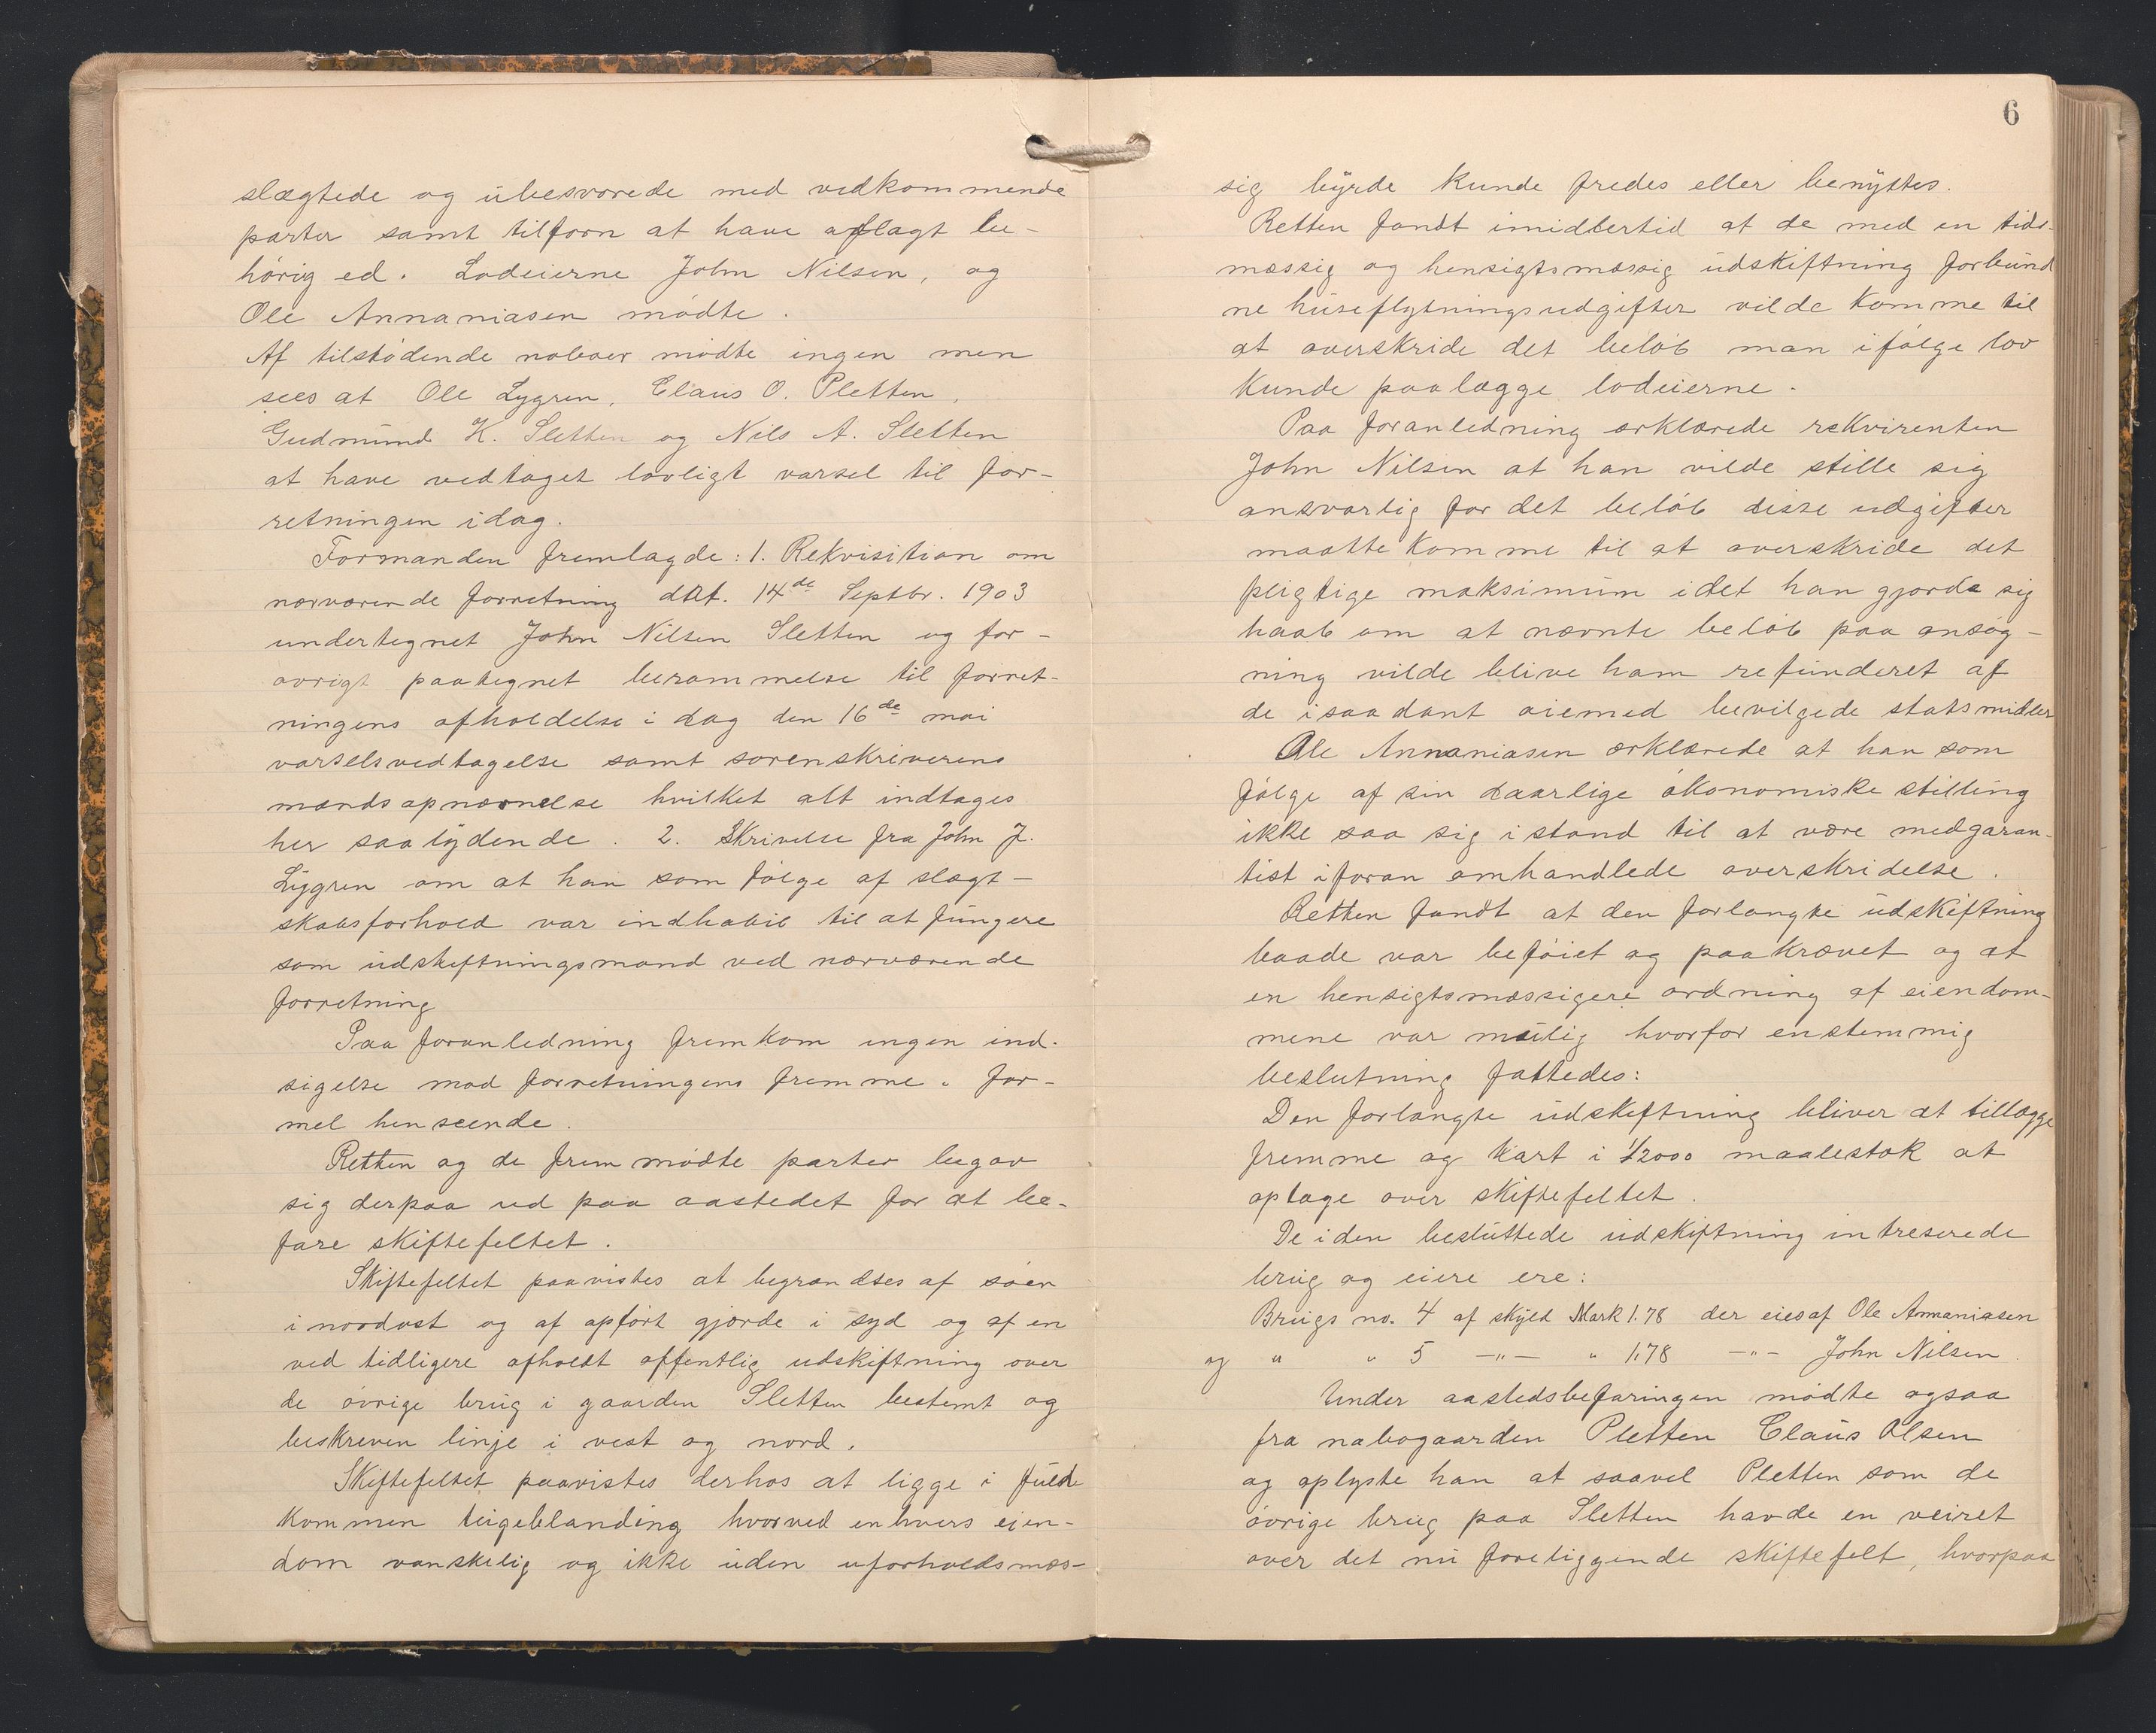 slægtede og ubesvorede med vedkommende
parter samt tilforn at have aflagt be-
hörig ed. Lodeierne John Nilsen, og
Ole Annaniasen mödte.
Af tilstödende naboer mödte ingen men
sees at Ole Lygren, Claus O. Pletten,
Gudmund K. Sletten og Nils A. Sletten
at have vedtaget lovligt varsel til for-
retningen idag.
Formanden fremlagde: 1. Rekvisition om
nærværende forretning dat. 14de Septbr. 1903
undertegnet John Nilsen Sletten og for-
övrigt paategnet berammelse til forret-
ningens afholdelse i dag den 16de mai
varselsvedtagelse samt sorenskriverens
mandsopnævnelse hvilket alt indtages
her saalydende. 2. Skrivelse fra John J.
Lygren om at han som fölge af slægt-
skabsforhold var indhabil til at fungere
som udskiftningsmand ved nærværende
forretning
Paa foranledning fremkom ingen ind-
sigelse mod forretningens fremme i for-
mel henseende.
Retten og de fremmödte parter begav
sig derpaa ud paa aastedet for at be-
fare skiftefeltet.
Skiftefeltet paavistes at begrændses af söen
i nordost og af opfört gjærde i syd og af en
ved tidligere afholdt offentlig udskiftning over
de övrige brug i gaarden Sletten bestemt og
beskreven linje i vest og nord.
Skiftefeltet paavistes derhos at ligge i fuld-
kommen teigeblanding hvorved enhvers eien-
dom vanskelig og ikke uden uforholdsmæs-
6
sig byrde kunde fredes eller benyttes.
Retten fandt imidlertid at de med en tids-
mæssig og hensigtsmæssig udskiftning forbund
ne huseflytningsudgifter vilde komme til
at overskride det belöb man ifölge lov
kunde paalægge lodeierne.
Paa foranledning erklærede rekvirenten
John Nilsen at han vilde stille sig
ansvarlig for det belöb disse udgifter
maatte komme til at overskride det
pligtige maksimum idet han gjorde sig
haab om at nævnte belöb paa ansög-
ning vilde blive ham refunderet af
de isaadant öiemed bevilgede statsmidler
Ole Annaniasen erklærede at han som
fölge af sin daarlige ökonomiske stilling
ikke saa sig istand til at være medgaran-
tist iforan omhandlede overskridelse.
Retten fandt at den forlangte udskiftning
baade var beföiet og paakrævet og at
en hensigtsmæssigere ordning af eiendom-
mene var mulig hvorfor enstemmig
beslutning fattedes:
Den forlangte udskiftning bliver at tillægge
fremme og kart i 1/2000 maalestok at
optage over skiftefeltet.
De iden besluttede udskiftning intreserede
brug og eiere ere:
Brugs no. 4 af skyld Mark 1.78 der eies af Ole Annaniasen
og " " 5 -"- " 1.78 -"- John Nilsen.
Under aastedsbefaringen mödte ogsaa
fra nabogaarden Pletten Claus Olsen
og oplyste han at saavel Pletten som de
övrige brug paa Sletten havde en veiret
over det nu foreliggende skiftefelt, hvorpaa